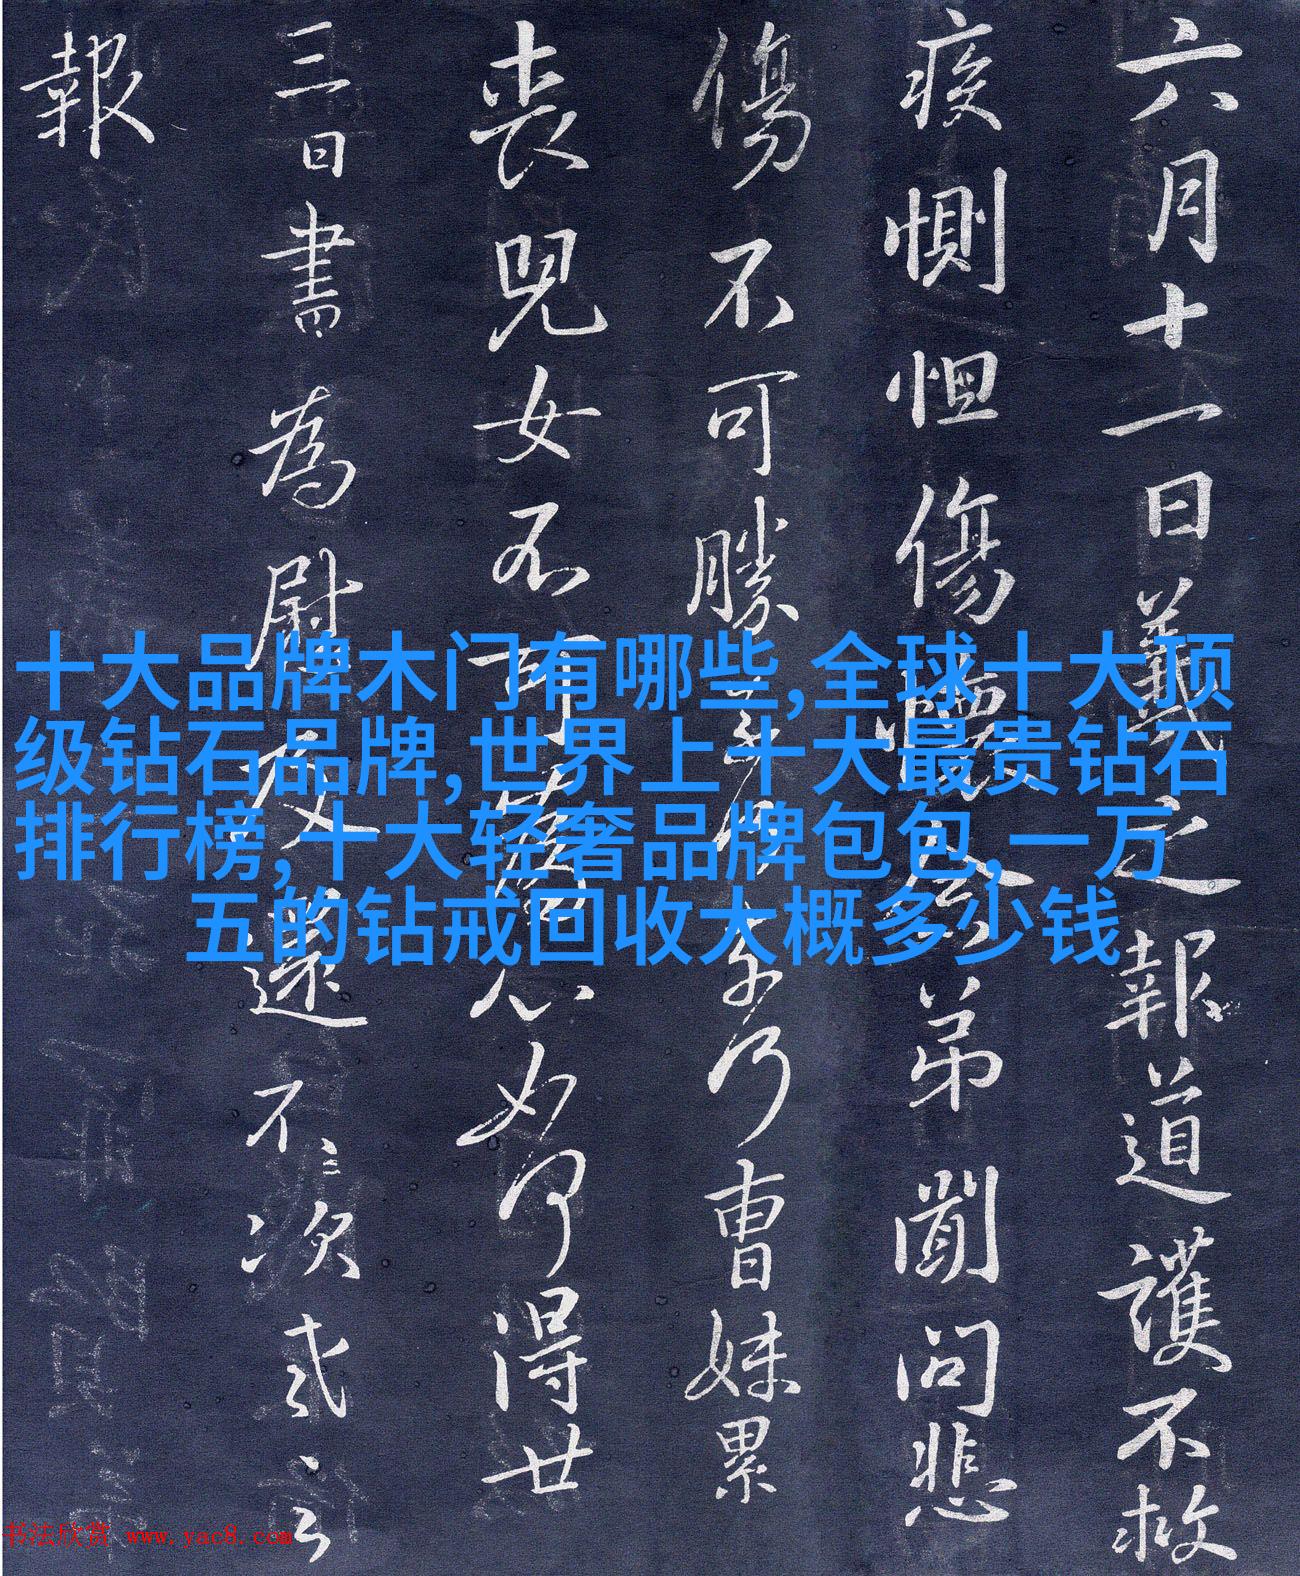 六月十一日羲之報道護不救
疾惻怛傷懷念弟聞問悲
傷不可勝曹妹累
喪兒女不可為心如何得廿
三日書為慰反還不次
報
十大品牌木门有哪些,全球十大顶
级钻石品牌,世界上十大最贵钻石
排行榜,十大轻奢品牌包包,一万
五的钻戒回收大概多少钱
书法欣赏 www.yac8.com